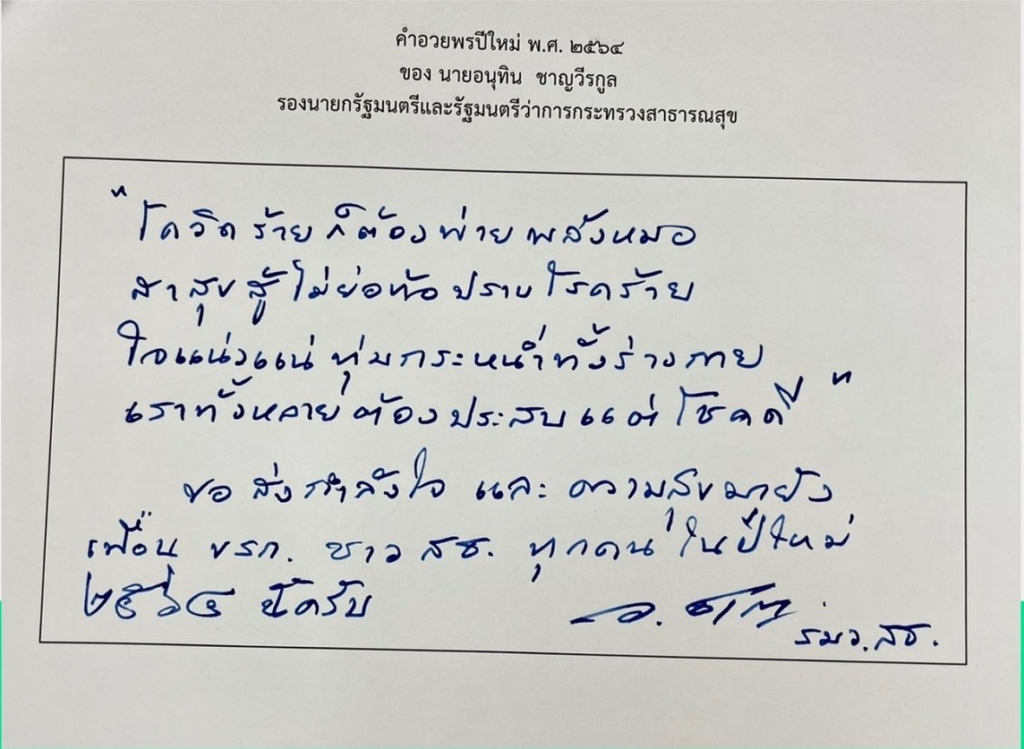 คำอวยพรปีใหม่ พ.ศ. ๒๕๖๔
ของ นายอนุทิน ชาญวีรกูล
รองนายกรัฐมนตรีและรัฐมนตรีว่าการกระทรวงสาธารณสุข
"โควิดร้ายก็ต้องพ่ายพลังหมอ
สาสุขสู้ไม่ย่อท้อปราบโรคร้าย
ใจแน่วแน่ทุ่มกระหน่ำทั้งร่างกาย
เราทั้งหลายต้องประสบแต่โชคดี"
ขอส่งกำลังใจ และ ความสุขมายัง
เพื่อน ขรก. ชาว สธ. ทุกคน ในปีใหม่
๒๕๖๔ นี้ครับ
รมว.สธ.